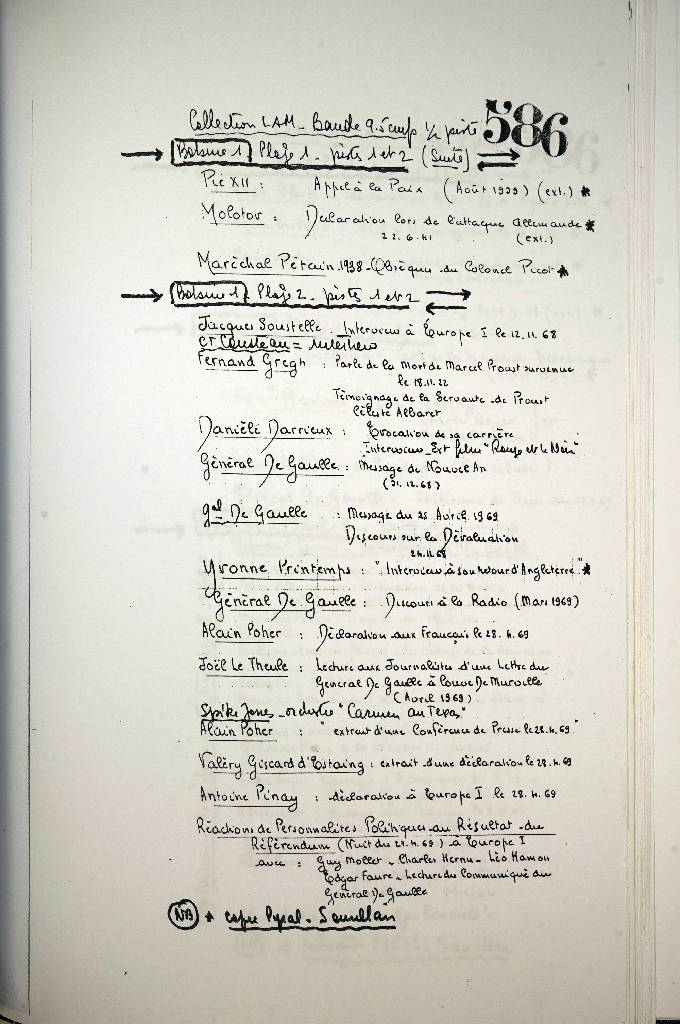 Collection LAM - Bande 9.5 cm/s 1/2 piste 586
Bobine 1 Plage 1 - pistes 1 et 2 (Suite)
Pie XII : Appel à la Paix (Août 1939) (ext.) *
Molotov : Déclaration lors de l'attaque Allemande *
22.6.41 (ext.)
Maréchal Pétain 1938 - Obsèques du Colonel Picot *
Bobine 1 - Plage 2 - pistes 1 et 2
Jacques Soustelle . Interview à Europe I le 12.11.68
et Cousteau =
Fernand Gregh : Parle de la Mort de Marcel Proust survenue
le 18.11.22
Témoignage de la Servante de Proust
Céleste Albaret
Danièle Darrieux : Evocation de sa carrière
Interview - Ext film "Rouge et le Noir"
Général De Gaulle : Message de Nouvel An
(31.12.68)
gal De Gaulle : Message du 25 Avril 1969
Discours sur la Dévaluation
24.11.68
Yvonne Printemps : "Interview à son retour d'Angleterre" *
Général De Gaulle : Discours à la Radio (Mars 1969)
Alain Poher : Déclaration aux Français le 28.4.69
Joël Le Theule : Lecture aux Journalistes d'une Lettre du
Général De Gaulle à Couve De Murville
(Avril 1969)
Spike Jones - orchestre "Carmen au Texas"
Alain Poher : "extrait d'une Conférence de Presse le 28.4.69"
Valéry Giscard d'Estaing : extrait d'une déclaration le 28.4.69
Antoine Pinay : déclaration à Europe I le 28.4.69
Réactions de Personnalités Politiques au Résultat du
Référendum (Nuit du 27.4.69) à Europe I
avec : Guy Mollet - Charles Hernu - Léo Hamon
Edgar Faure - Lecture du Communiqué du
Général De Gaulle
NB * copie Pyral -